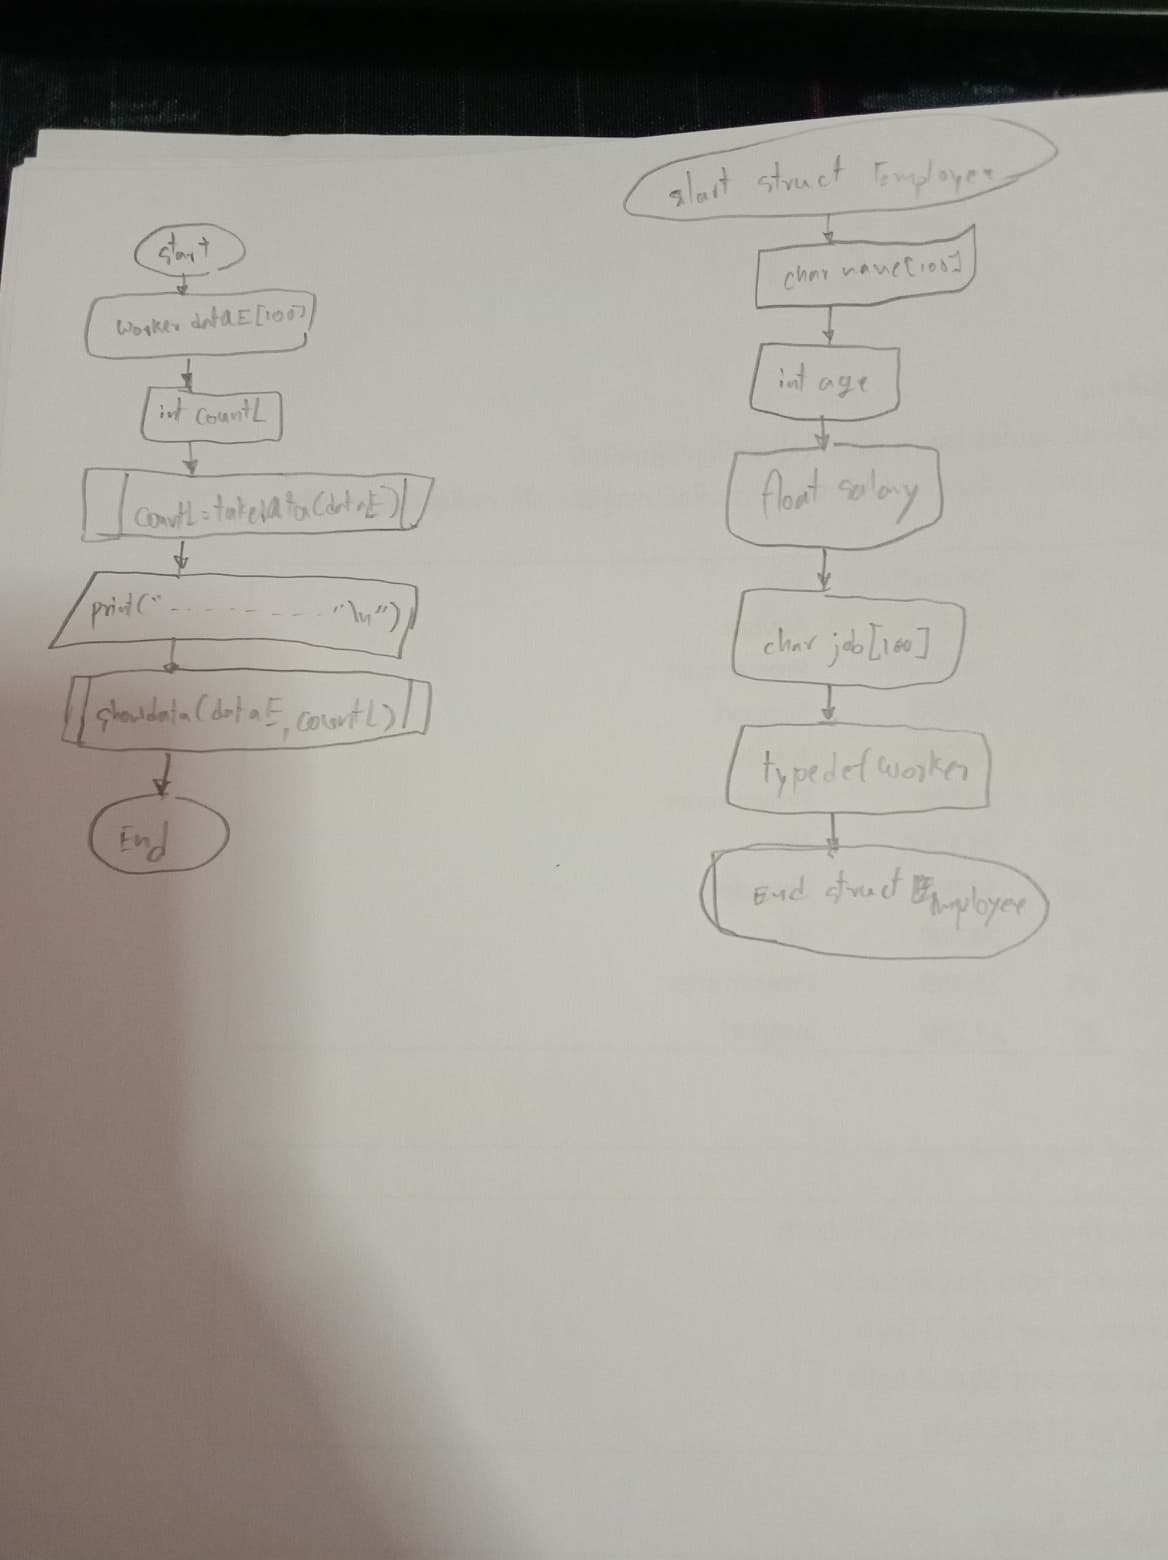 start
worker dataE[100]
int countL
countL=takedata(dataE)
print("- - - - - - - -"\n")
showdata(dataE, countL)
End
start struct Employee
char name[100]
int age
float salary
char job[100]
typedef worker
End struct Employee